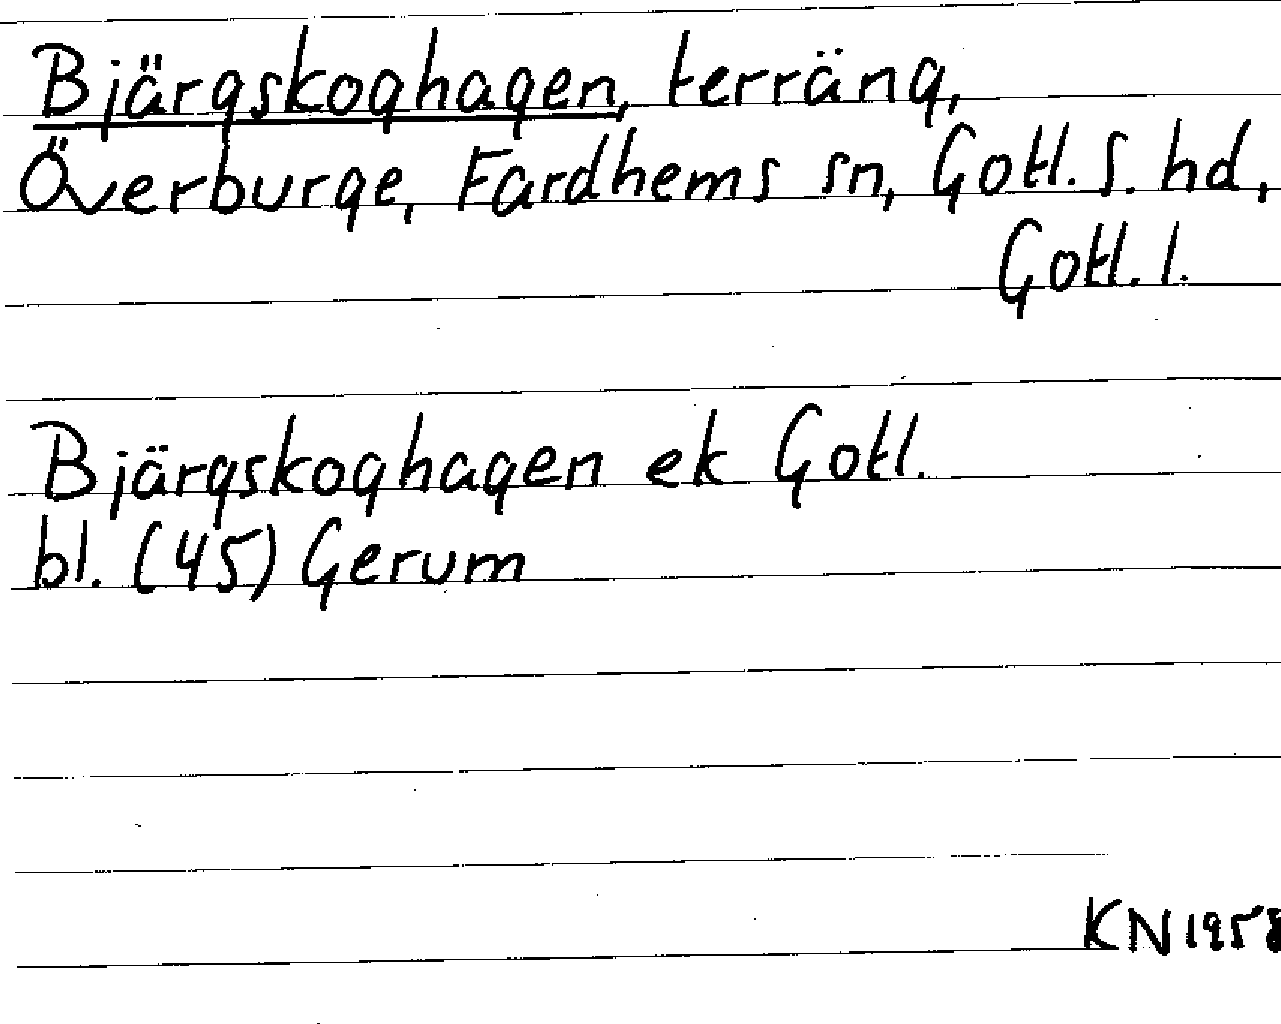 Bjärgskoghagen, terräng,
Överburge, Fardhems sn, Gotl. S. hd,
Gotl. l.
Bjärgskoghagen ek Gotl.
bl. (45) Gerum
KN 1958